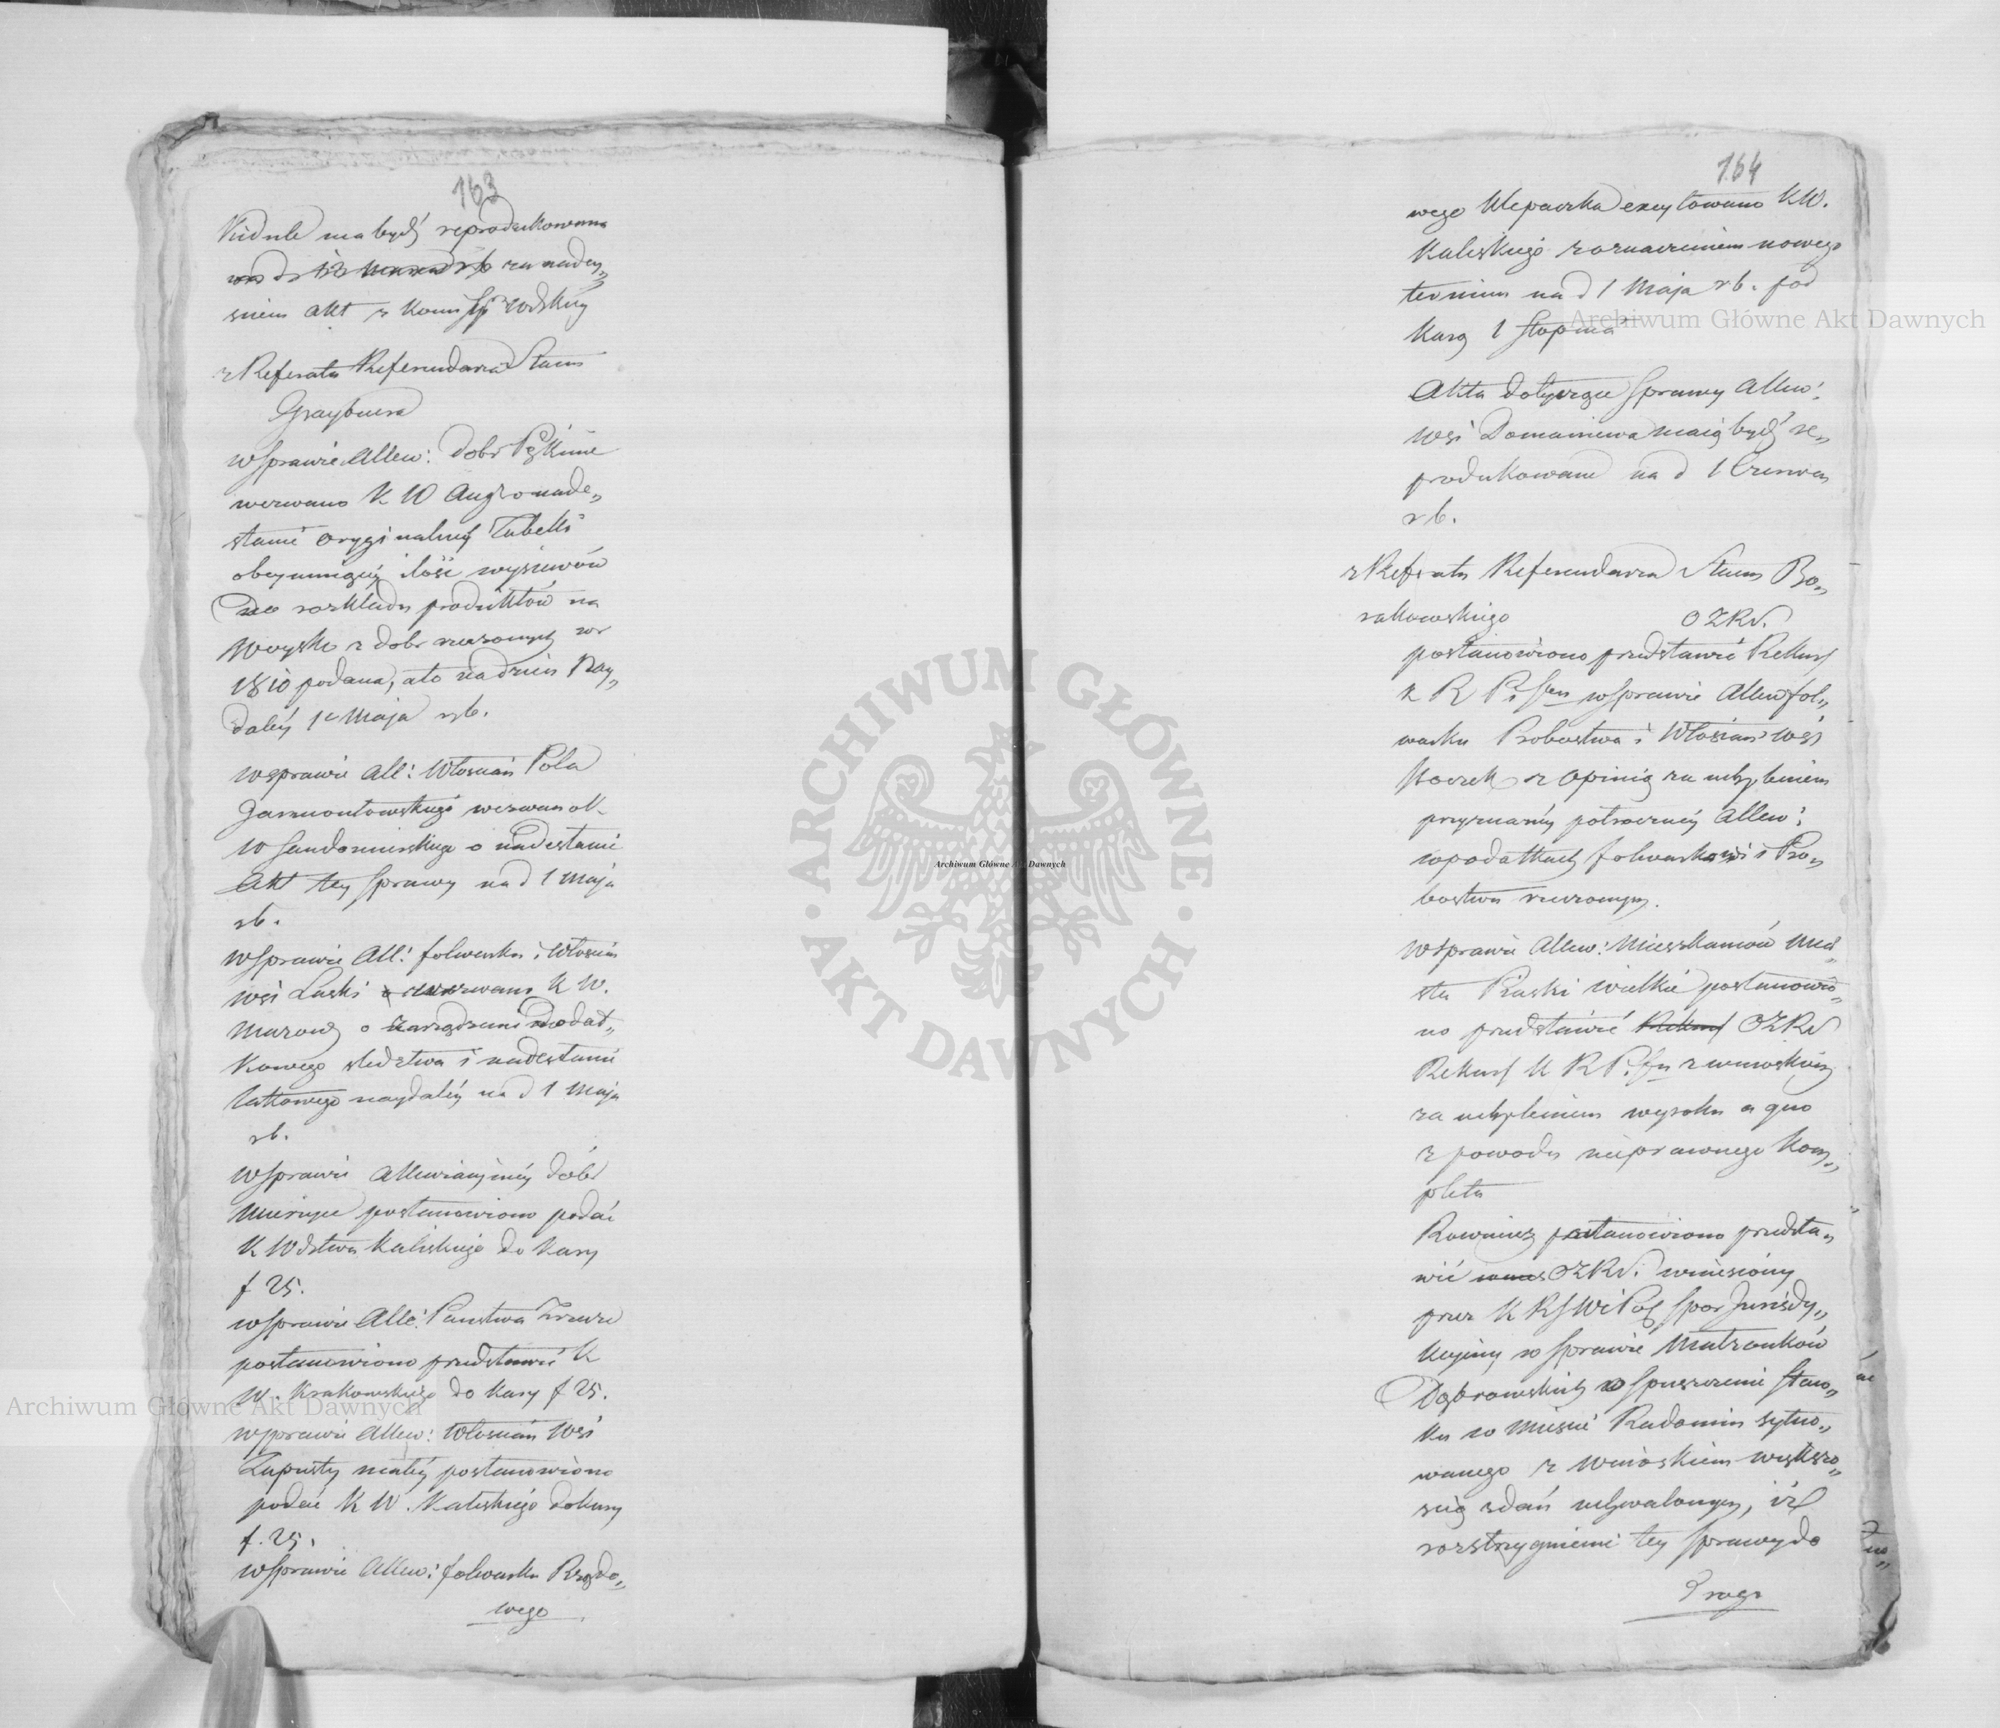 163
Kidule ma bydź reprodukowana
na d 12 Marca rb za nadey„
sciem akt z Komissyi Wdzkiey
z Referatu Referendarza Stanu
Grzybowa
w Sprawie Allew: Dobr
wezwano K W Aug: o nade„
słanie oryginalney Tabelli
obeymuiącey ilość wysiewów
do rozkładu produktów na
Woysko z dobr rzeczonych w r
1810 podana, a to na dzień Nay„
daléy 1o Maja rb.
w sprawie All: Włościan Pola
Jarmontowskiego wezwano K
W Sandomirskiego o nadesłanie
Akt tey Sprawy na d 1 Maja
rb.
w Sprawie All: folwarku i Włościan
wsi Laski wezwano K W.
Mazow o zarządzenie dodat„
kowego sledztwa i nadesłanie
takowego naydaléy na d 1 Maja
rb.
w Sprawie Allewiacyiney dóbr
postanowiono podać
K Wdztwa Kaliskiego do Kary
f 25.
w Sprawie Alle: Państwa
postanowiono przedstawić K
W. Krakowskiego do Kary f 25.
w Sprawie Allew: Włościan Wsi
Zapusty małey postanowiono
podać K W. Kaliskiego do Kary
f. 25.
w Sprawie Allew: folwarku Rządo„
wego
164
wego Klepaczka excytowano KW.
Kaliskiego z oznaczeniem nowego
terminu na d 1 Maja rb. pod
Karą 1 Stopnia
Akta dotyczące Sprawy Allew:
wsi Domaniewa maią bydź re„
produkowane na d 1 Czerwca
rb.
z Referatu Referendarza Stanu Bo„
rakowskiego OZRS.
postanowiono przedstawić Rekurs
K R P i Sku w Sprawie Allew fol„
warku Probostwa i Włościan wsi
z Opinią za uchyleniem
przyznaney potroczney Allew:
w podatkach folwarkowi i Pro„
bostwu rzeczonym.
w Sprawie Allew: Mieszkańców Mia„
sta Piaski wielkie postanowio„
no przedstawić Rekurs OZRS
Rekurs K R P i Sku z wnioskiem
za uchyleniem wyroku a quo
z powodu nieprawnego Kom„
pletu
Rownież postanowiono przedsta„
wić OZRS. wniesiony
przez K RSWiPol Spor Jurisdy„
kcyiny w Sprawie Małżonków
Dąbrowskich o Spuszczenie Staw„
ku w Miescie Radomiu sytuo„
wanego z Wnioskiem większo„
scią zdań uchwalonym, iż
rozstrzygnienie tey Sprawy do
Drogi
Archiwum Główne Akt Dawnych
Archiwum Główne Akt Dawnych
Archiwum Główne Akt Dawnych
ARCHIWUM GŁÓWNE · AKT DAWNYCH ·